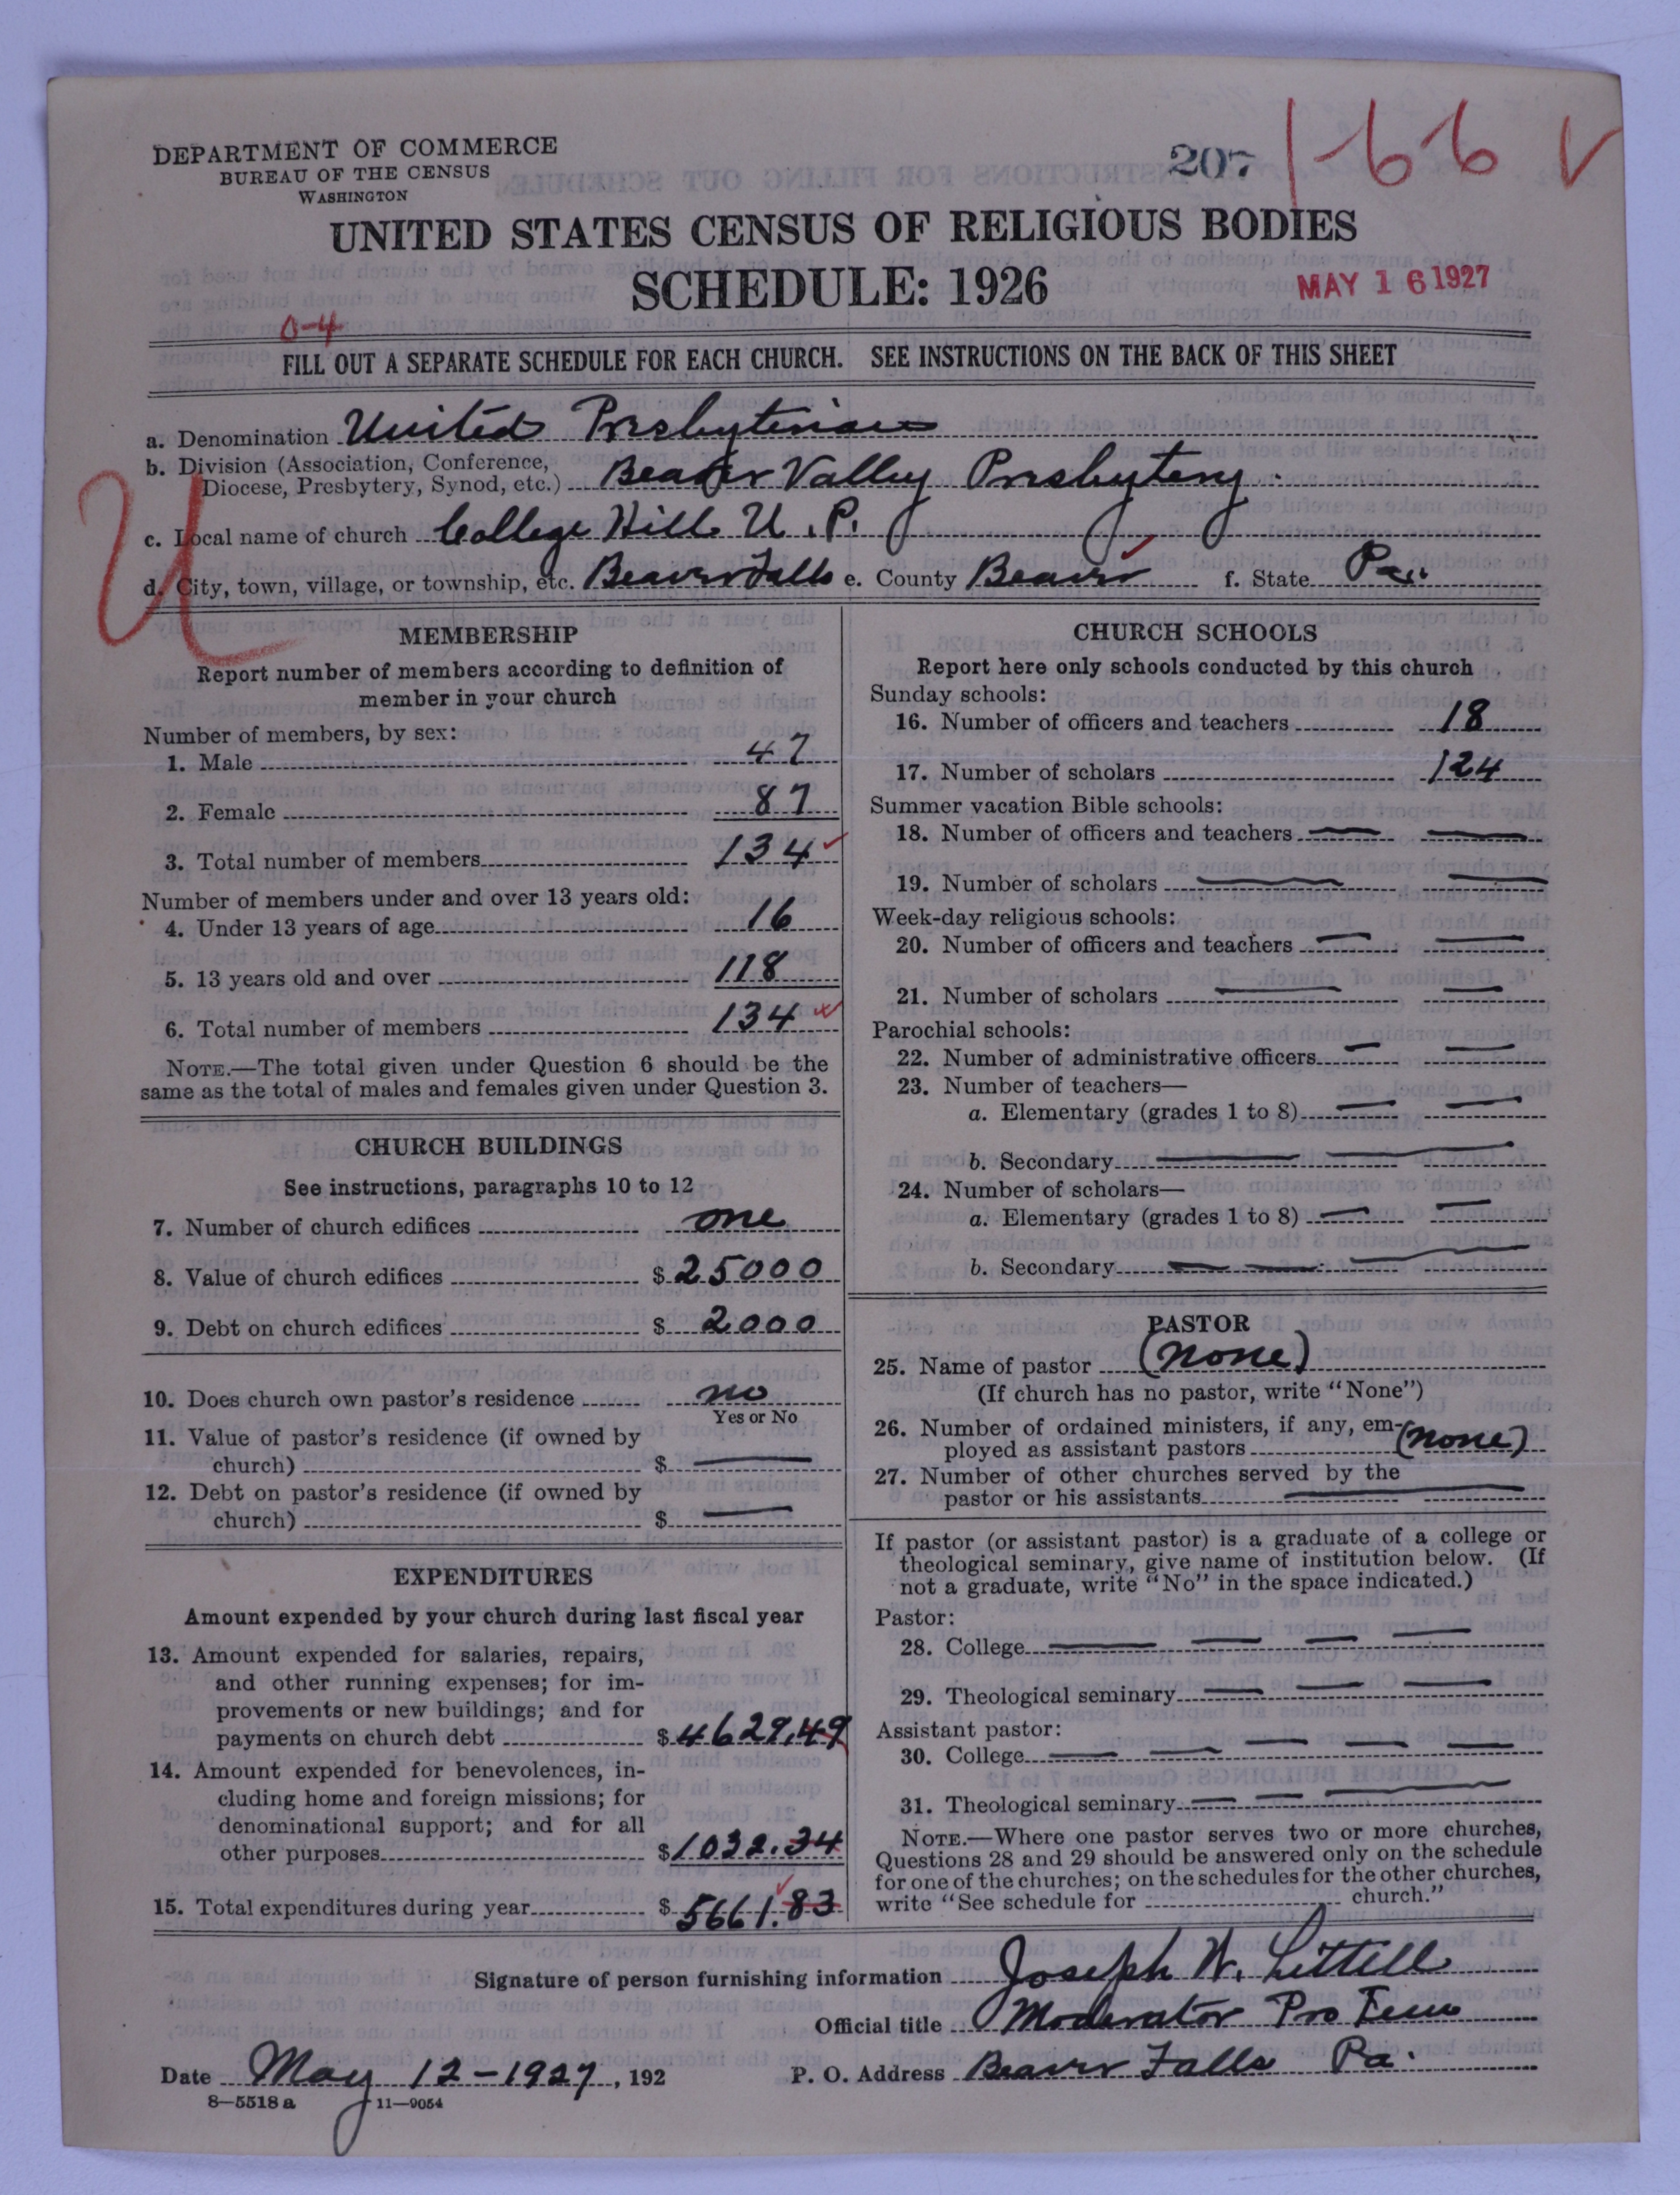 DEPARTMENT OF COMMERCE
BUREAU OF THE CENSUS
WASHINGTON
207 1-66
UNITED STATES CENSUS OF RELIGIOUS BODIES
SCHEDULE: 1926
MAY 16 1927
0-4
FILL OUT A SEPARATE SCHEDULE FOR EACH CHURCH. SEE INSTRUCTIONS ON THE BACK OF THIS SHEET
a. Denomination United Presbyterian
b. Division (Association, Conference,
Diocese, Presbytery, Synod, etc.) Beaver Valley Presbytery.
U
c. Local name of church College Hill U.P.
d. City, town, village, or township, etc. Beaver Falls e. County Beaver f. State Pa.
MEMBERSHIP
Report number of members according to definition of
member in your church
Number of members, by sex:
1. Male 47
2. Female 87
3. Total number of members 134
Number of members under and over 13 years old:
4. Under 13 years of age 16
5. 13 years old and over 118
6. Total number of members 134
NOTE.—The total given under Question 6 should be the
same as the total of males and females given under Question 3.
CHURCH BUILDINGS
See instructions, paragraphs 10 to 12
7. Number of church edifices one
8. Value of church edifices $25000
9. Debt on church edifices $2000
10. Does church own pastor's residence no
Yes or No
11. Value of pastor's residence (if owned by
church) $ —
12. Debt on pastor's residence (if owned by
church) $ —
EXPENDITURES
Amount expended by your church during last fiscal year
13. Amount expended for salaries, repairs,
and other running expenses; for im-
provements or new buildings; and for
payments on church debt $4629.49
14. Amount expended for benevolences, in-
cluding home and foreign missions; for
denominational support; and for all
other purposes $1032.34
15. Total expenditures during year $5661.83
CHURCH SCHOOLS
Report here only schools conducted by this church
Sunday schools:
16. Number of officers and teachers 18
17. Number of scholars 124
Summer vacation Bible schools:
18. Number of officers and teachers — —
19. Number of scholars — —
Week-day religious schools:
20. Number of officers and teachers — —
21. Number of scholars — —
Parochial schools:
22. Number of administrative officers — —
23. Number of teachers—
a. Elementary (grades 1 to 8) — —
b. Secondary — —
24. Number of scholars—
a. Elementary (grades 1 to 8) — —
b. Secondary — — —
PASTOR
25. Name of pastor (none)
(If church has no pastor, write "None")
26. Number of ordained ministers, if any, em-
ployed as assistant pastors (none)
27. Number of other churches served by the
pastor or his assistants —
If pastor (or assistant pastor) is a graduate of a college or
theological seminary, give name of institution below. (If
not a graduate, write "No" in the space indicated.)
Pastor:
28. College — — — —
29. Theological seminary — — —
Assistant pastor:
30. College — — — — —
31. Theological seminary — — —
NOTE.—Where one pastor serves two or more churches,
Questions 28 and 29 should be answered only on the schedule
for one of the churches; on the schedules for the other churches,
write "See schedule for church."
Signature of person furnishing information Joseph W. Littell
Official title Moderator Pro Tem
Date May 12-1927, 192 P. O. Address Beaver Falls Pa.
8—5518 a 11—9054